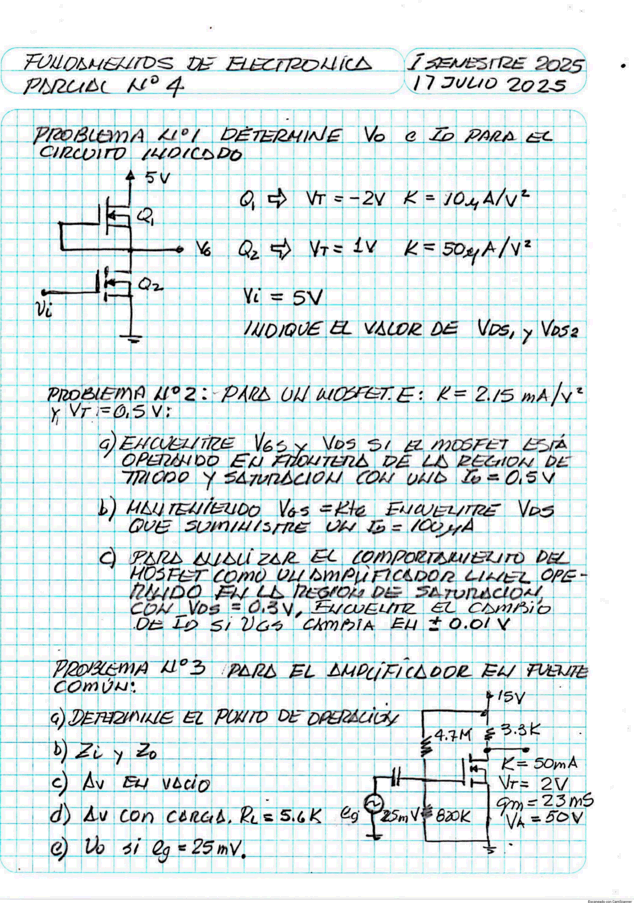 FUNDAMENTOS DE ELECTRONICA
PARCIAL Nº 4
I SEMESTRE 2025
17 JULIO 2025
PROBLEMA Nº1 DETERMINE Vo e ID PARA EL
CIRCUITO INDICADO
5V
Q1
Vo
Q2
Vi
Q1 ⇒ VT = -2V K = 10μA/V²
Q2 ⇒ VT = 1V K = 50μA/V²
Vi = 5V
INDIQUE EL VALOR DE VDS1 y VDS2
PROBLEMA Nº2: PARA UN MOSFET.E: K = 2.15 mA/V²
y VT = 0,5 V:
a) ENCUENTRE VGS y VDS SI EL MOSFET ESTÁ
OPERANDO EN FRONTERA DE LA REGION DE
TRIODO Y SATURACION CON UNA ID = 0,5V
b) MANTENIENDO VGS = Kte ENCUENTRE VDS
QUE SUMINISTRE UN ID = 100μA
c) PARA ANALIZAR EL COMPORTAMIENTO DEL
MOSFET COMO UN AMPLIFICADOR LINEL OPE-
RANDO EN LA REGION DE SATURACION
CON VDS = 0.3V, ENCUENTR EL CAMBIO
DE ID SI VGS CAMBIA EN ± 0.01V
PROBLEMA Nº3 PARA EL AMPLIFICADOR EN FUENTE
COMÚN:
a) DETERMINE EL PUNTO DE OPERACIÓN
b) Zi y Zo
c) Av EN VACIO
d) Av CON CARGA. RL = 5.6K
e) Vo si eg = 25mV.
15V
4.7M
3.3K
K = 50mA
VT = 2V
gm = 23mS
VA = 50V
eg
25mV
820K
Escaneado con CamScanner